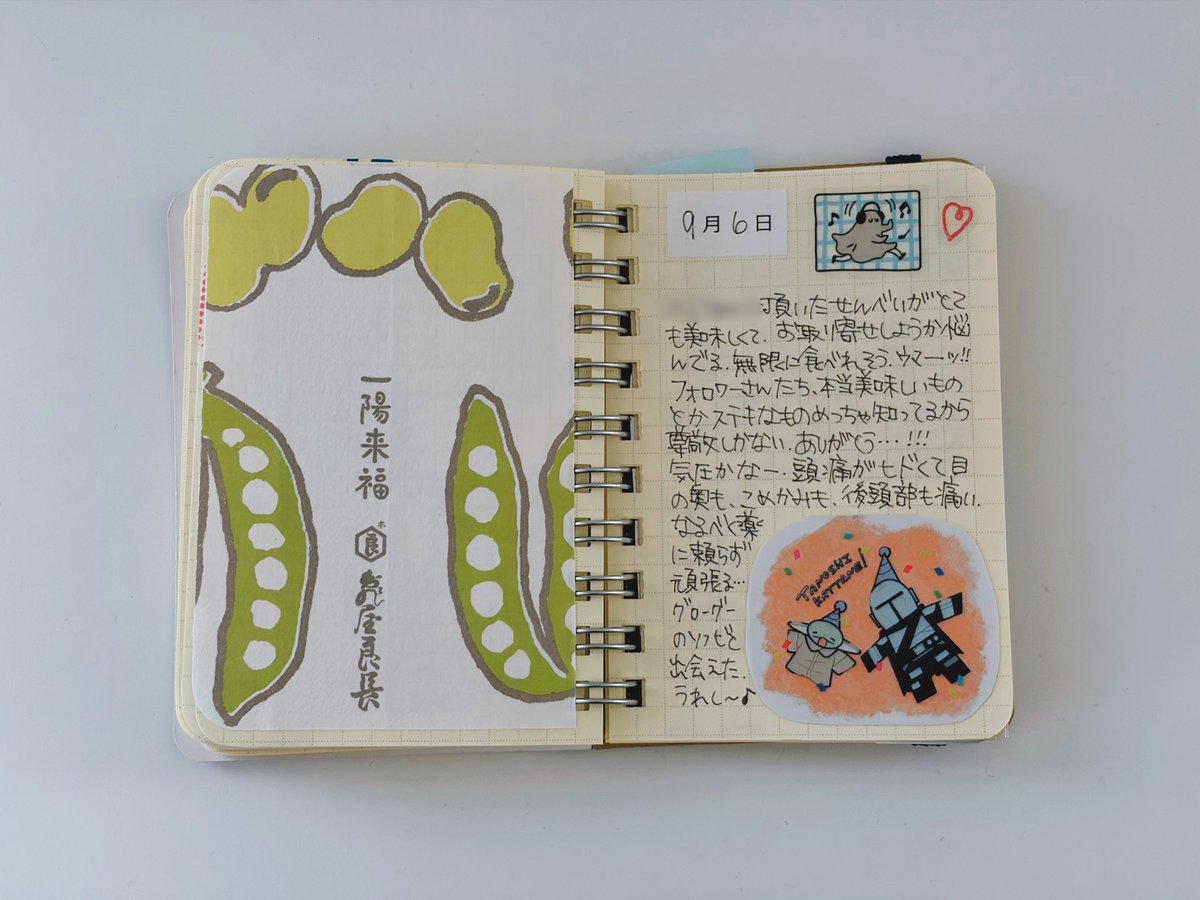 一陽来福
良
屋良長
9月6日
頂いたせんべいがとて
も美味しくて、お取り寄せしようか悩
んでる。無限に食べれそう。ウマーッ!!
フォロワーさんたち、本当美味しいもの
とかステキなものめっちゃ知ってるから
尊敬しかない。ありがとう…!!!
気圧かなー。頭痛がヒドくて目
の奥も、こめかみも、後頭部も痛い。
なるべく薬
に頼らず
頑張る…
グローグー
のソフビと
出会えた。
うれし〜♪
TANOSHI
KATTANE!